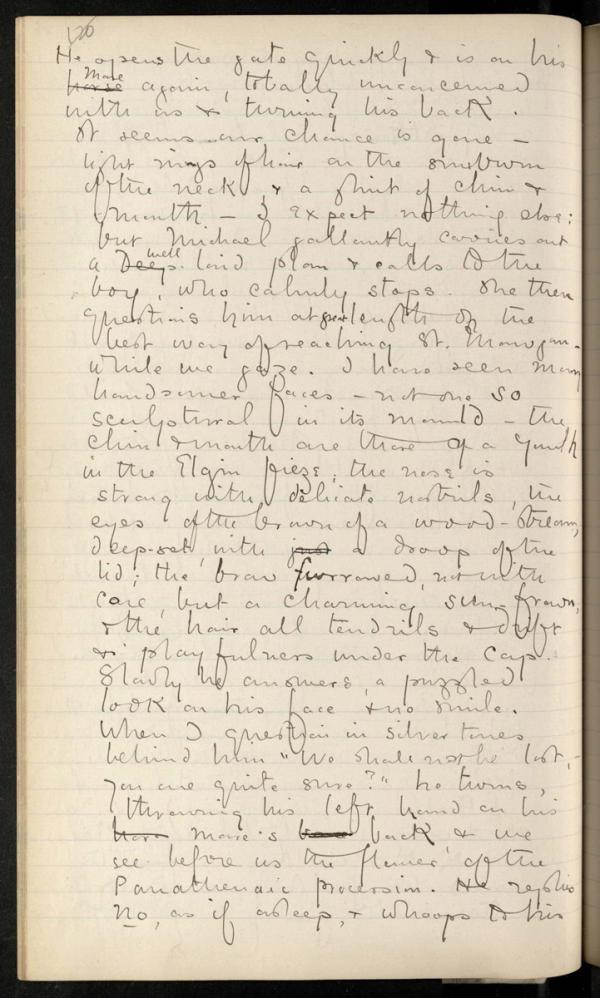 126
He opens the gate quickly & is on his
horse mare again, totally unconcerned
with us & turning his back.
It seems our chance is gone –
light rings of hair on the sunburn
of the neck, & a hint of chin &
mouth – I expect nothing else:
but Michael gallantly carries out
a Deep well laid plan & calls to the
boy, who calmly stops. She then
questions him at great length of the
best way of reaching St. Mawgan –
while we gaze. I have seen many
handsomer faces – not one so
sculptural in its mould – the
chin & mouth are those of a youth
in the Elgin frieze; the nose is
strong with delicate nostrils, the
eyes of the brown of a wood-stream,
deep-set, with just a droop of the
lid; the brow furrowed, not with
care, but a charming sun-frown,
& the hair all tendrils & drift
& playfulness under the cap.
Slowly he answers, a puzzled
look on his face & no smile.
When I question in silver tones
behind him "We shall not be lost, –
you are quite sure?" he turns,
throwing his left hand on his
mare's back & we
see before us the flower of the
Panathenaic procession. He replies
No, as if asleep, & whoops to his